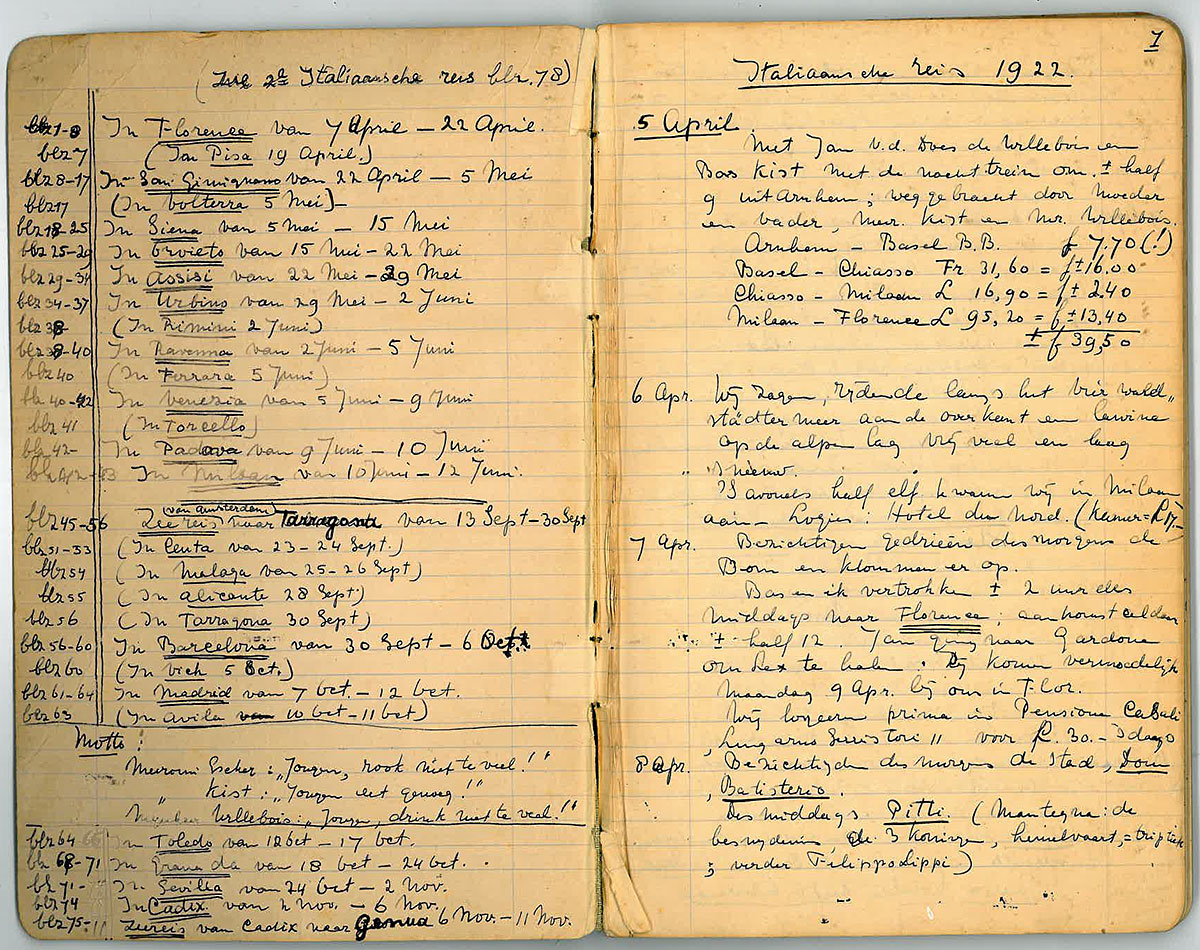 (Zie 2e Italiaansche reis blz. 78)
blz 1-8 In Florence van 7 April – 22 April.
blz 7 (In Pisa 19 April.)
blz 8-17 In San Gimignano van 22 April – 5 Mei
blz 17 (In Volterra 5 Mei)
blz 18-25 In Siena van 5 Mei – 15 Mei
blz 25-29 In Orvieto van 15 Mei – 22 Mei
blz 29-34 In Assisi van 22 Mei – 29 Mei
blz 34-37 In Urbino van 29 Mei – 2 Juni
blz 38 (In Rimini 2 Juni)
blz 38-40 In Ravenna van 2 Juni – 5 Juni
blz 40 (In Ferrara 5 Juni)
blz 40-42 In Venezia van 5 Juni – 9 Juni
blz 41 (In Torcello)
blz 42- In Padova van 9 Juni – 10 Juni
blz 42-43 In Milaan van 10 Juni – 12 Juni.
(van Amsterdam)
blz 45-56 Zeereis naar Tarragona van 13 Sept-30 Sept
blz 51-53 (In Ceuta van 23 – 24 Sept.)
blz 54 (In Malaga van 25-26 Sept)
blz 55 (In Alicante 28 Sept)
blz 56 (In Tarragona 30 Sept)
blz 56-60 In Barcelona van 30 Sept – 6 Oct
blz 60 (In Vich 5 Oct.)
blz 61-64 In Madrid van 7 Oct. – 12 Oct.
blz 63 (In Avila 10 Oct – 11 Oct)
Motto:
Mevrouw Escher: „Jongen, rook niet te veel!"
" Kist: „Jongen eet genoeg!"
Willebois: „Jongen, drink niet te veel!"
blz 64 In Toledo van 12 Oct – 17 Oct.
blz 68-71 In Granada van 18 Oct – 24 Oct.
blz 71- In Sevilla van 24 Oct – 2 Nov.
blz 74 In Cadix van 2 Nov. – 6 Nov.
blz 75- Zeereis van Cadix naar Genua 6 Nov. – 11 Nov.
1
Italiaansche reis 1922.
5 April
Met Jan v.d. Does de Willebois en
Bas Kist met de nachttrein om ± half
9 uit Arnhem; weggebracht door moeder
en vader, Mevr. Kist en Mr. Willebois.
Arnhem – Basel B.B. f 7.70 (!)
Basel – Chiasso Fr 31,60 = f ± 16.00
Chiasso – Milaan L 16,90 = f ± 2.40
Milaan – Florence L 95,20 = f ± 13,40
± f 39,50
6 Apr. Wij zagen, rijdende langs het Vier wald„
städter meer aan de overkant een lawine
op de alpen lag vrij veel en laag
sneeuw.
's Avonds half elf kwamen wij in Milaan
aan – Logies: Hotel du Nord. (Kamer = £ 17,-
7 Apr. Bezichtigen gedrieën des morgens de
Dom en klommen er op.
Bas en ik vertrokken ± 2 uur des
middags naar Florence; aankomst aldaar
± half 12. Jan ging naar Gardone
om Lex te halen. Zij komen vermoedelijk
Maandag 9 Apr. bij ons in Flor.
Wij logeeren prima in Pensione Casali
, Lungarno Serristori 11 voor £. 30.- 's daags
8 Apr. Bezichtigden des morgens de Stad, Dom
, Batisterio.
Des middags Pitti. (Mantegna: de
besnijdenis, de 3 koningen, hemelvaart, = triptiek
; verder Filippo Lippi)